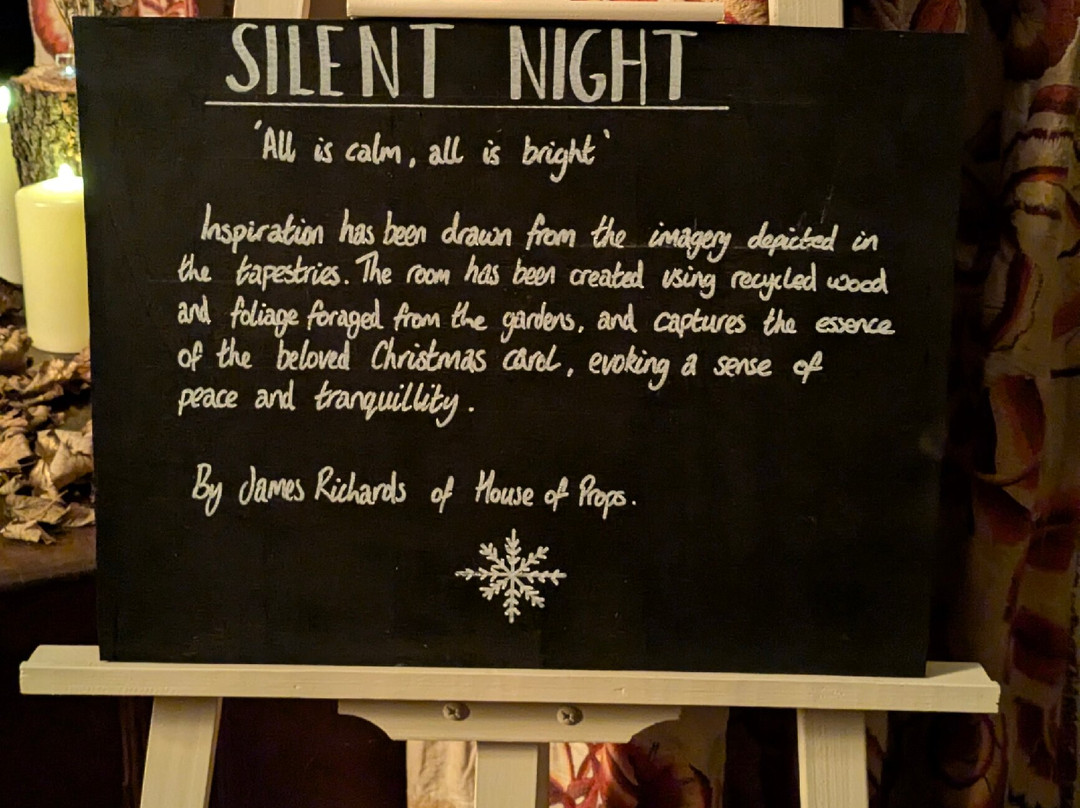 SILENT NIGHT
'All is calm, all is bright'
Inspiration has been drawn from the imagery depicted in
the tapestries. The room has been created using recycled wood
and foliage foraged from the gardens, and captures the essence
of the beloved Christmas carol, evoking a sense of
peace and tranquillity.
By James Richards of House of Props.